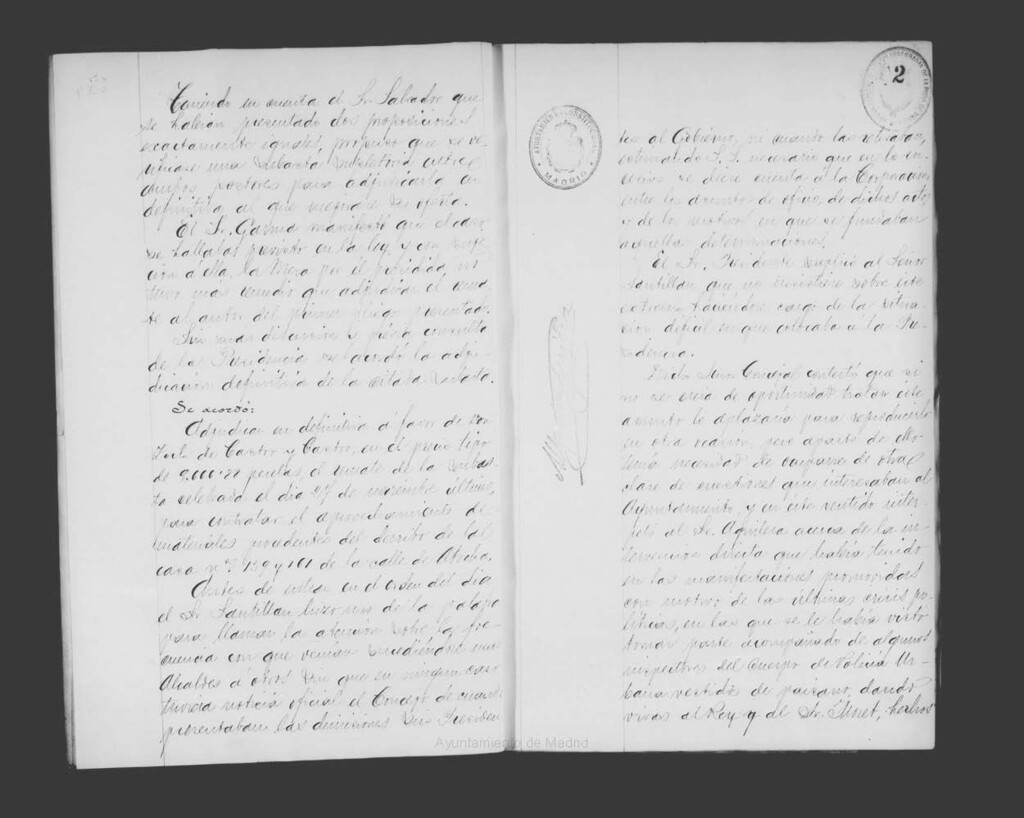 Teniendo en cuenta el Sr. Salvador que
se habían presentado dos proposiciones
exactamente iguales, propuso que se ve-
rificase una subasta entre
ambos postores para adjudicarla en
definitiva al que mejorase su oferta.
El Sr. manifestó que el caso
se hallaba previsto en la ley y con suje-
ción á ella, la Mesa por él presidida, no
tuvo más remedio que adjudicar el rema-
te al autor del primer pliego presentado.
Sin más discusión y previa consulta
de la Presidencia se acordó la adju-
dicación definitiva de la citada subasta.
Se acordó:
Adjudicar en definitiva á favor de Don
de Castro y Castro, en el precio tipo
de pesetas, el remate de la subas-
ta celebrada el dia 27 de noviembre último,
para contratar el aprovechamiento de
materiales procedentes del derribo de la
casa nº 159 y 161 de la calle de Atocha.
Antes de entrar en el orden del dia
el Sr. Santillan hizo uso de la palabra
para llamar la atención sobre la fre-
cuencia con que venian sucediéndose unos
Alcaldes á otros sin que en ningun caso
tuviera noticia oficial el Concejo de cuando
presentaban las dimisiones sus Presiden
2
tes al Gobierno, ni cuando las retiraban,
estimando S. S. necesario que en lo su-
cesivo se diese cuenta á la Corporación
entre los asuntos de oficio, de dichos actos
y de los motivos en que se fundaban
aquellas determinaciones.
El Sr. Presidente suplicó al Señor
Santillan que no insistiera sobre este
extremo haciéndose cargo de la situa-
ción dificil en que colocaba á la Pre-
sidencia.
Dicho Señor Concejal contestó que si
no se creia de oportunidad tratar este
asunto lo aplazaria para reproducirlo
en otra ocasión, pero aparte de ello
tenía necesidad de ocuparse de otra
clase de cuestiones que interesaban al
Ayuntamiento, y en este sentido inter-
peló al Sr. Aguilera acerca de la in-
tervencion directa que habia tenido
en las manifestaciones promovidas
con motivo de las últimas crisis po-
líticas, en las que se le habia visto
tomar parte acompañado de algunos
inspectores del Cuerpo de Policía Ur-
bana vestidos de paisano, dando
vivas al Rey y al Sr. Moret, hechos
MADRID
Ayuntamiento de Madrid